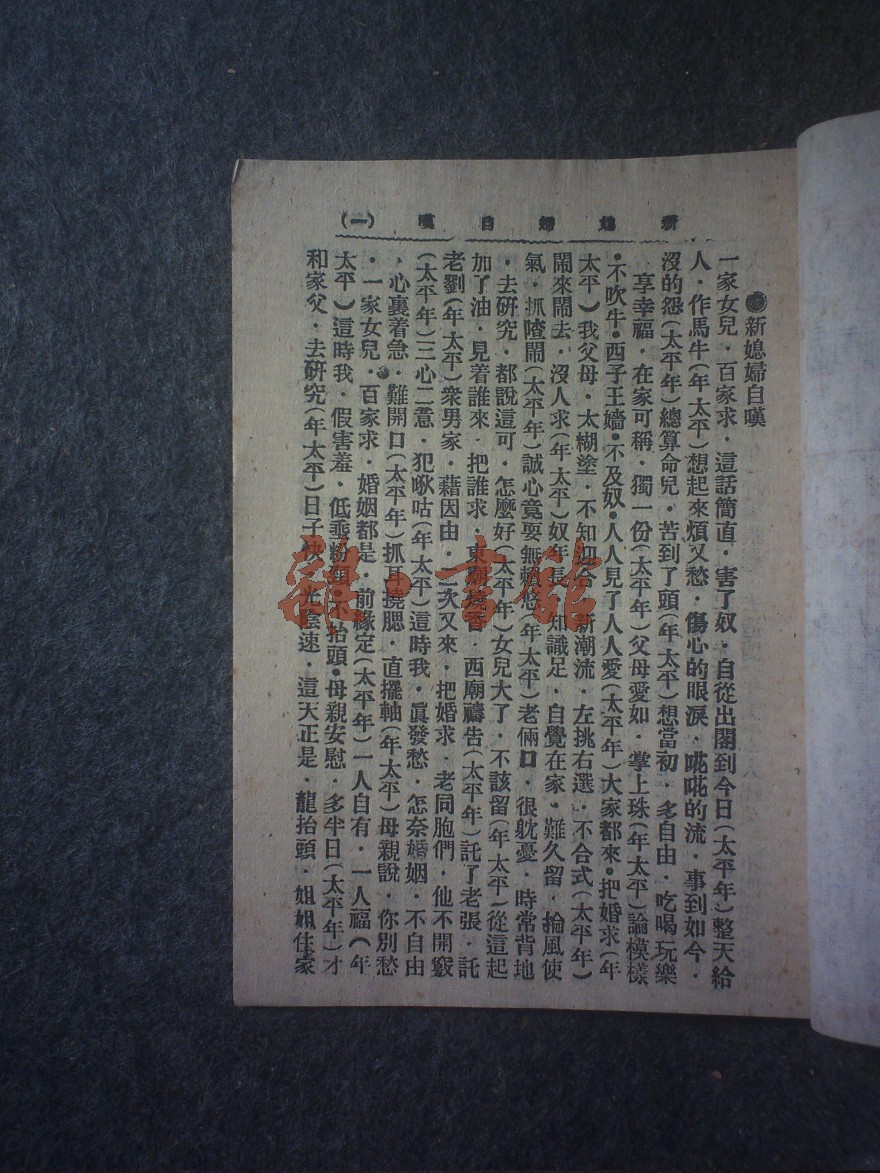 新媳婦自嘆 (一)
●新媳婦自嘆
一家女兒．百家求．這話簡直．害了奴．自從出閣到今日(太平年)整天給
人．作馬牛(年太平)想起來煩又愁．傷心的眼淚．㖠㖠的流．事到如今．
沒的怨(太平年)總算命兒．苦到了頭(年太平)想當初．多自由．吃喝玩樂
．享幸福．在家可稱．獨一份(太平年)父母愛如．掌上珠(年太平)論模樣
．不吹牛．西子王嬙．不及奴．人人見了人人愛(太平年)大家都來．把婚求(年
太平)我父母．太糊塗．不知迎合．新潮流．左挑右選．不合式(太平年)
鬧來鬧去．沒人求(年太平)奴年長．知識足．自覺在家．難久留．掄風使
氣．抓喳鬧(太平年)誠心竟耍無賴悠(年太平)老倆口．很躭憂．時常背地
．去研究．都說這可．怎麼好(太平年)女兒大了．不該留(年太平)從這起
加了油．見着誰來．把誰求．東廟燒香．西廟禱告(太平年)託了老張．託
老劉(年太平)衆男家．藉因由．次又來．把婚求．老同胞們．他不開竅
(太平年)三心二意．犯啾咕(年太平)這時我．眞發愁．怎奈婚姻．不自由
．心裏着急．難開口(太平年)抓耳撓腮．直擺軸(年太平)母親說．你別愁
．一家女兒．百家求．婚姻都是．前緣定(太平年)一人自有．一人福(年
太平)這時我．假害羞．低垂粉頭．不抬頭．母親安慰．多半日(太平年)才
和家父．去研究(年太平)日子快．光陰速．這天正是．龍抬頭．姐姐住家
雜·書館